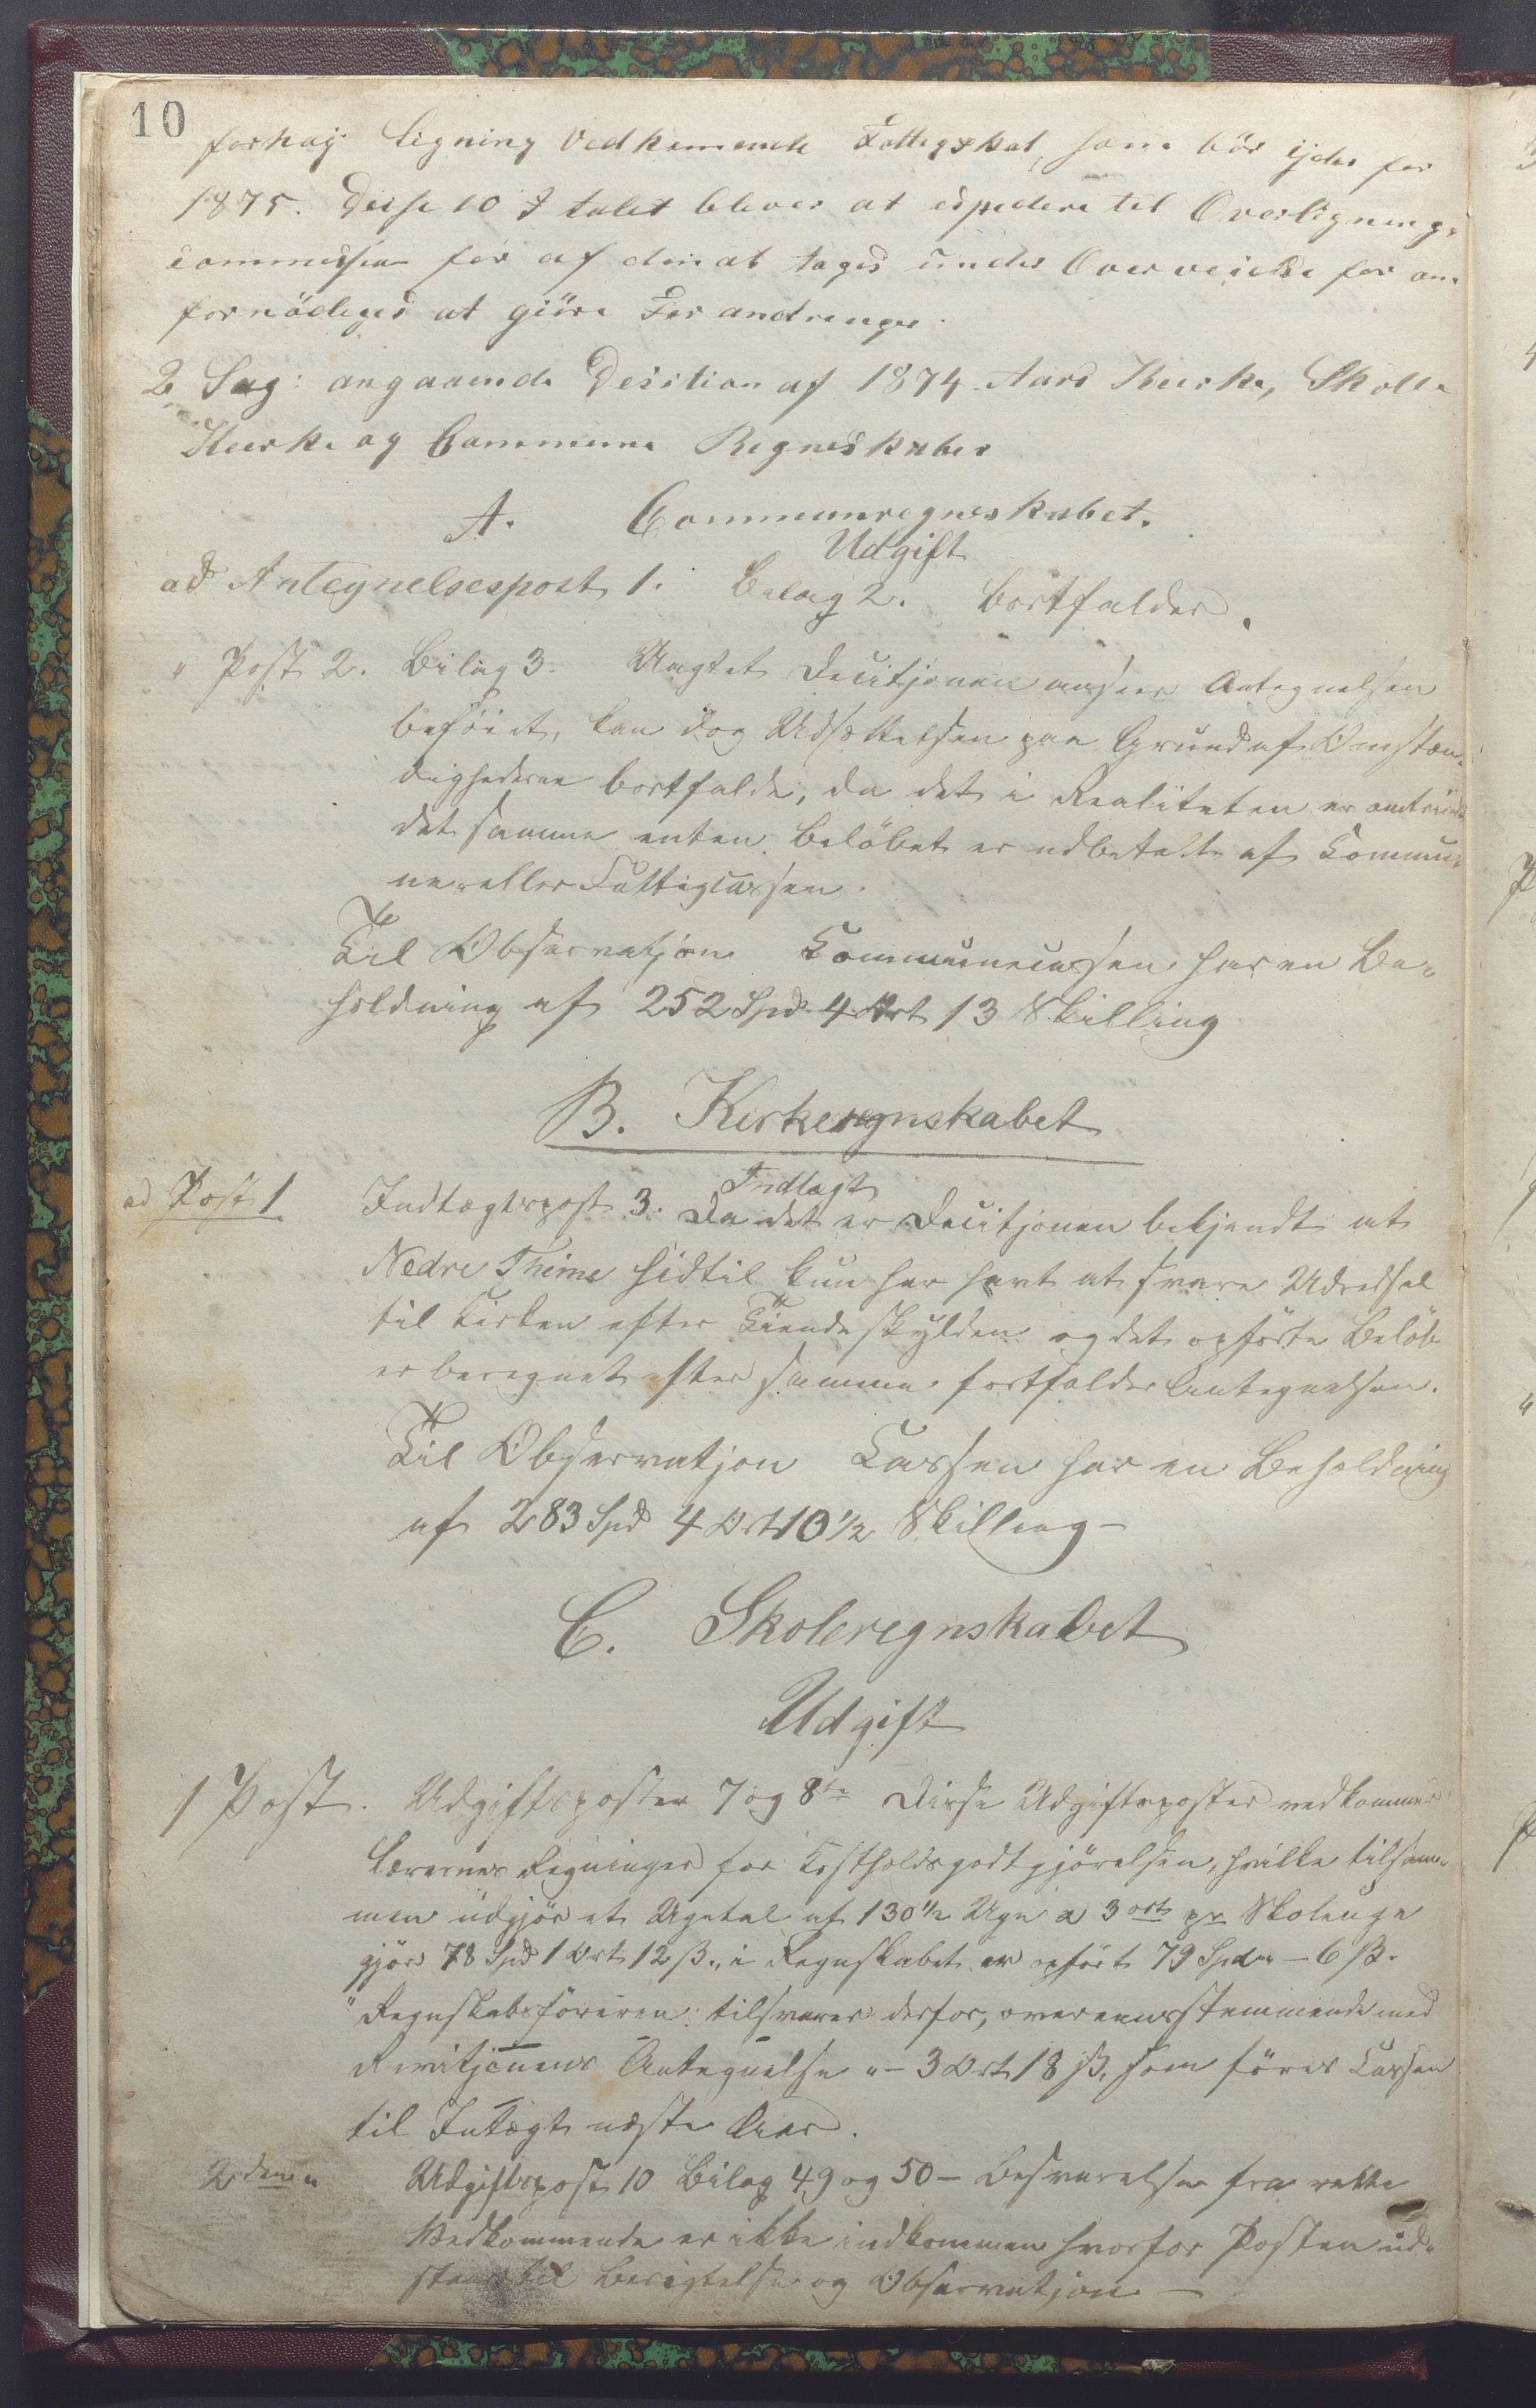 10
forhøy ligning Vedkommende Fattigskat, som bör ijder for
1875. Disse 10 I talet blever at expedere til Overlignings
commission for af den at tages under Overveielse for om
fornödiges at giöre Forandringer.
2 Sag: angaaende Desition af 1874 Aars Keerke, Skolle
Keerke og Commune Regneskaber
A. Communregneskabet.
Udgift
ad Antegnelsespost 1. Belag 2. bortfalder.
" Post 2. Bilag 3. Uagtet Decitjonen anseer Antegnelsen
beföiet, kan dog Udsættelsen paa Grund af Omstæn-
dighederne bortfalde, da det i Realiteten er omtrent
det samme enten Belöbet er udbetalt af Commu-
ne eller Fattigcassen.
Til Observatjon Communecassen har en Be-
holdning af 252 Spd 4 Ort 13 Skilling
B. Kirkeregnskabet
Indtægt
ad Post 1 Indtægtspost 3. Da det er Decitjonen bekjendt at
Nedre Thime hidtil kun har havt at svare Udredsel
til Kirken efter Tiendeskylden og det opförte Belöb
er beregnet efter samme bortfalder Antegnelsen.
Til Observatjon Cassen har en Beholdning
af 283 Spd 4 Ort 10½ Skilling -
C. Skoleregnskabet
Udgift
1 Post. Udgiftsposter 7 og 8de Disse Udgiftsposter vedkommer
Lærernes Regninger for Kostholdsgodtgjörelsen, hvilke tilsam-
men udgjör et Ugetal af 130½ Uge a 3 ort pr Skoleuge
gjör 78 Spd 1 Ort 12 ß., i Regnskabet er opfört 79 Spd " - 6 ß.
" Regnskabsföreren tilsvarer derfor, overeensstemmende med
Revitjonens Antegnelse " - 3 Ort 18 ß, som föres Cassen
til Intægt næste Aar.
2den " Udgiftspost 10 Bilag 49 og 50 - Besvarelse fra rette
Vedkommende er ikke indkommen hvorfor Posten ud-
staar til Berigtelse og Observatjon -